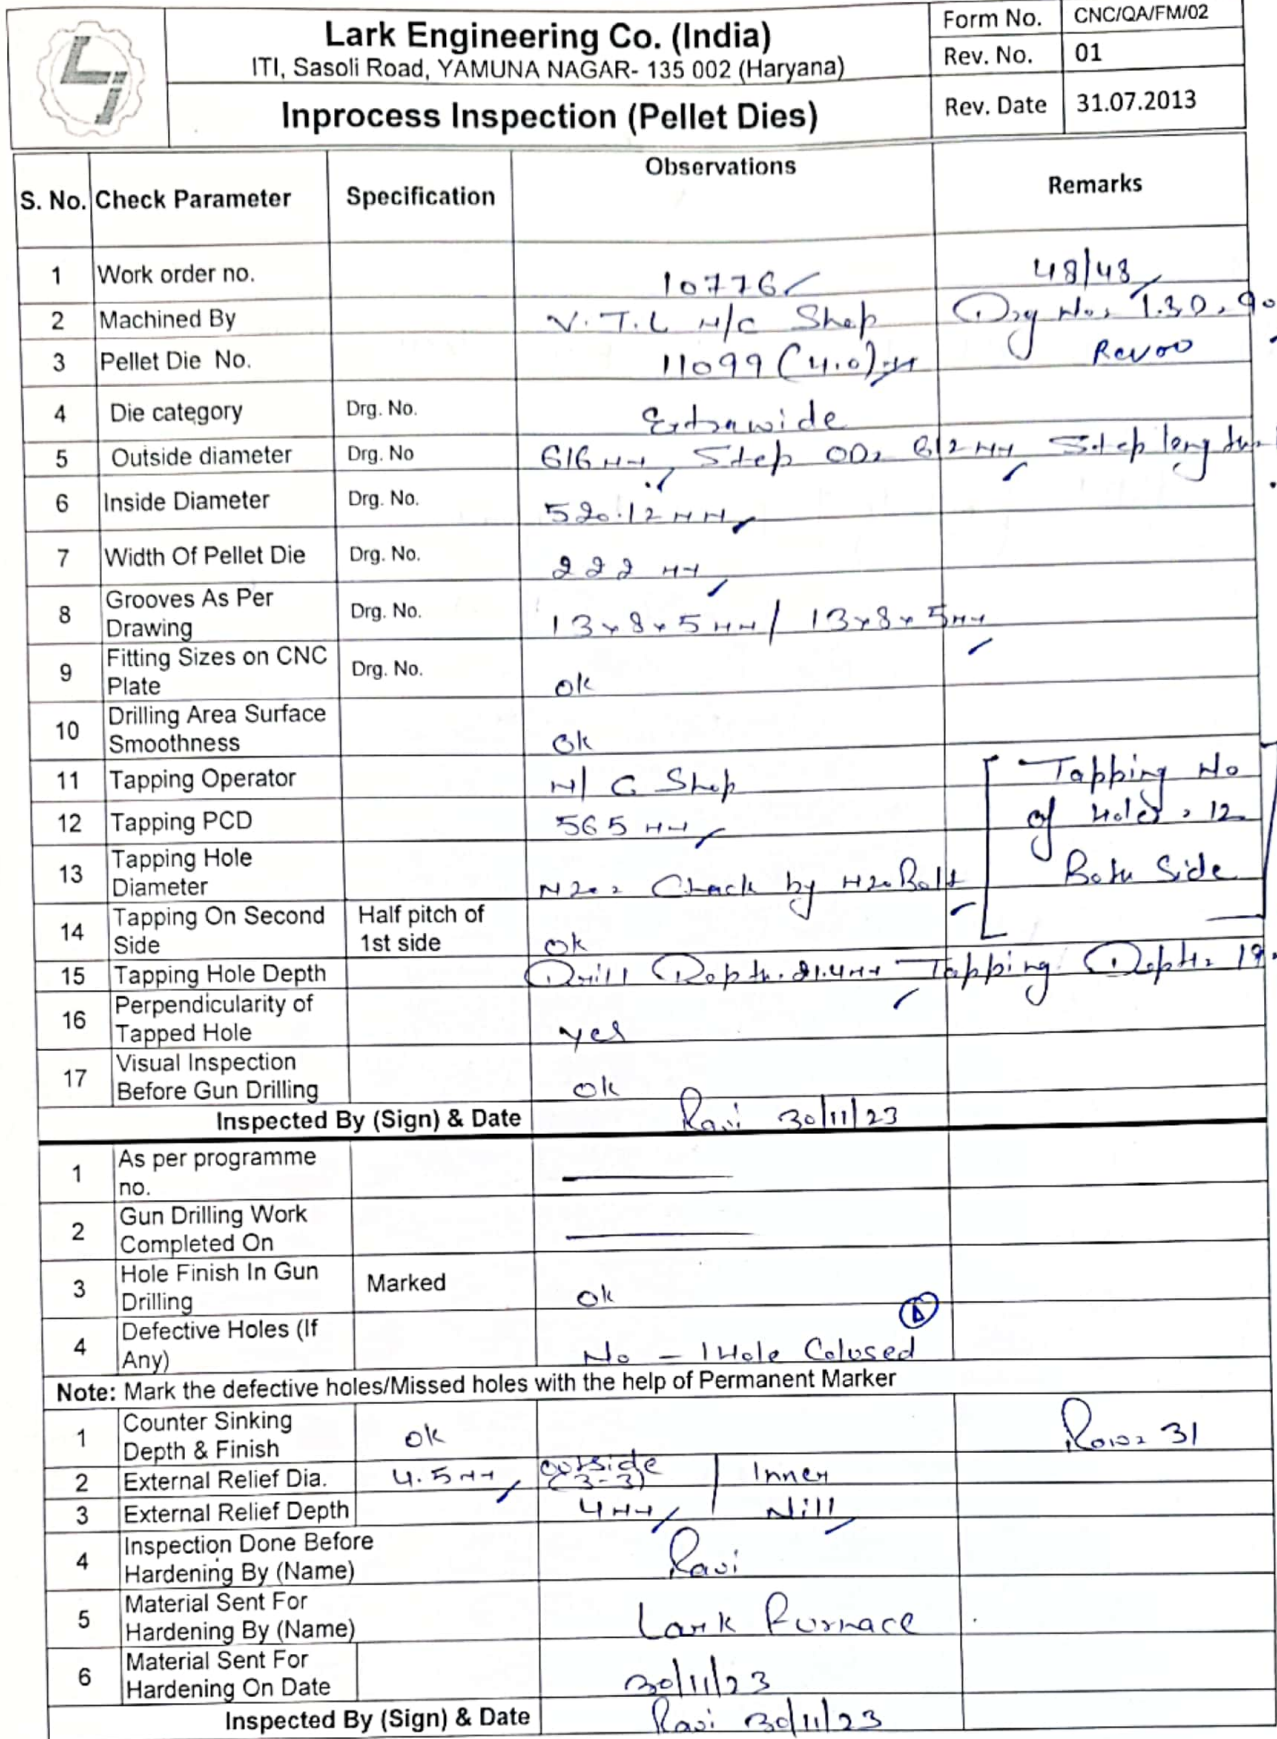 Lark Engineering Co. (India)
ITI, Sasoli Road, YAMUNA NAGAR- 135 002 (Haryana)
Inprocess Inspection (Pellet Dies)
Form No. CNC/QA/FM/02
Rev. No. 01
Rev. Date 31.07.2013
S. No. Check Parameter Specification Observations Remarks
1 Work order no. 10776 48/48
2 Machined By V.T.L M/C Shop Drg No. 1.30.90
3 Pellet Die No. 11099 (4.0) Rev00
4 Die category Drg. No. Extrawide
5 Outside diameter Drg. No 616 MM, Step OD. 612 MM Step long
6 Inside Diameter Drg. No. 520.12 MM
7 Width Of Pellet Die Drg. No. 222 MM
8 Grooves As Per Drawing Drg. No. 13x8x5 MM / 13x8x5 MM
9 Fitting Sizes on CNC Plate Drg. No. Ok
10 Drilling Area Surface Smoothness Ok
11 Tapping Operator M/C Shop Tapping No
12 Tapping PCD 565 MM of Holes 12
13 Tapping Hole Diameter M20 Check by M20 Bolt Both Side
14 Tapping On Second Side Half pitch of 1st side Ok
15 Tapping Hole Depth Drill Depth. 21.4MM Tapping Depth. 19.
16 Perpendicularity of Tapped Hole yes
17 Visual Inspection Before Gun Drilling Ok
Inspected By (Sign) & Date Ravi 30/11/23
1 As per programme no.
2 Gun Drilling Work Completed On
3 Hole Finish In Gun Drilling Marked Ok
4 Defective Holes (If Any) No - 1 Hole Colused
Note: Mark the defective holes/Missed holes with the help of Permanent Marker
1 Counter Sinking Depth & Finish Ok Row 31
2 External Relief Dia. 4.5 MM outside (3-3) Inner
3 External Relief Depth 4 MM Nill
4 Inspection Done Before Hardening By (Name) Ravi
5 Material Sent For Hardening By (Name) Lark Furnace
6 Material Sent For Hardening On Date 30/11/23
Inspected By (Sign) & Date Ravi 30/11/23